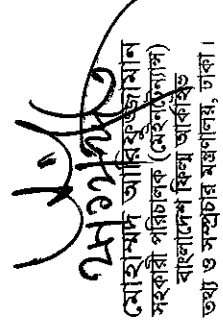 মোহাম্মদ আরিফুজ্জামান
সহকারী পরিচালক (মেইনটেন্যান্স)
বাংলাদেশ ফিল্ম আর্কাইভ
তথ্য ও সম্প্রচার মন্ত্রণালয়, ঢাকা।